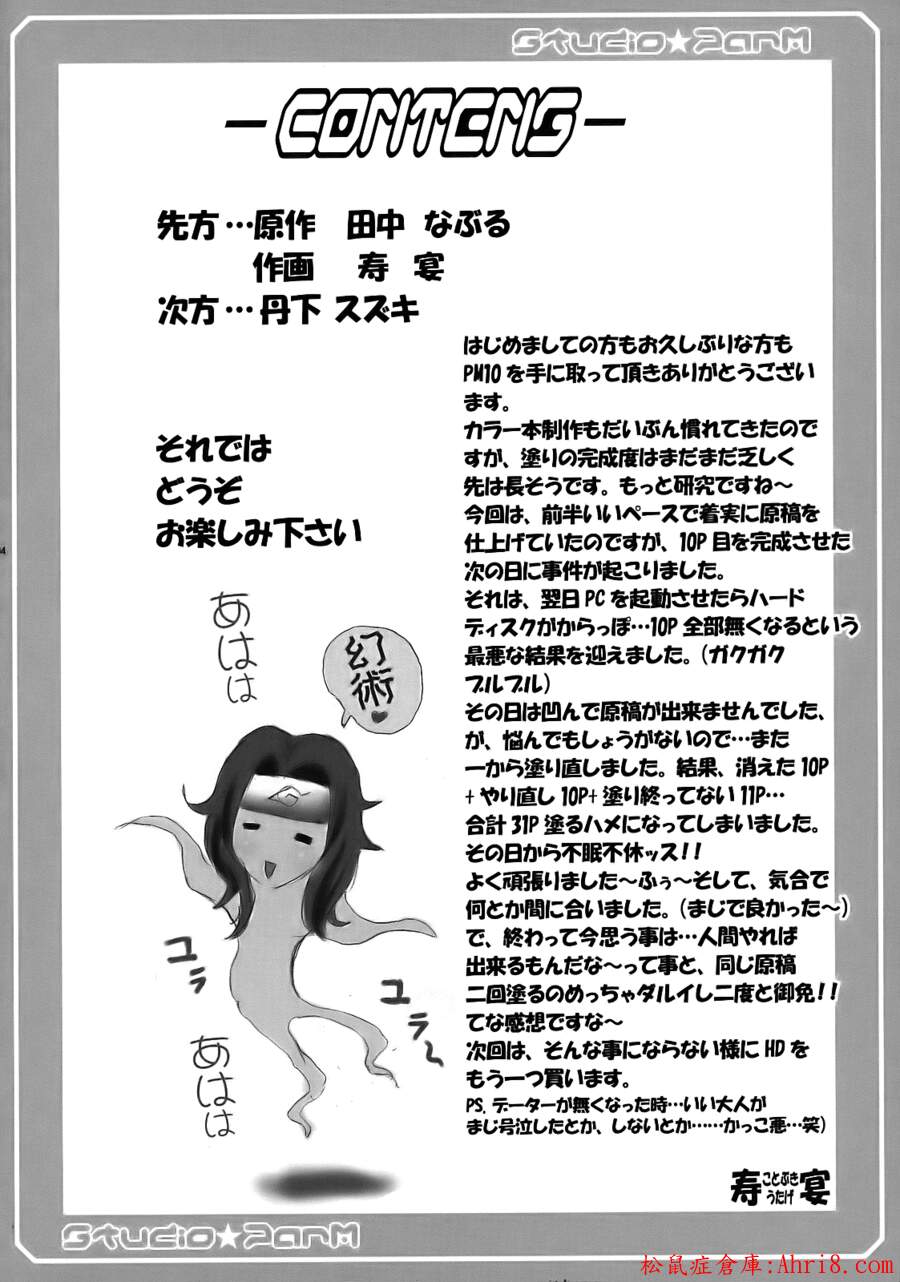 Studio★PanM
-CONTENS-
先方…原作 田中 なぶる
作画 寿 宴
次方…丹下 スズキ
それでは
どうぞ
お楽しみ下さい
はじめましての方もお久しぶりな方も
PM10を手に取って頂きありがとうござい
ます。
カラー本制作もだいぶん慣れてきたので
すが、塗りの完成度はまだまだ乏しく
先は長そうです。もっと研究ですね～
今回は、前半いいペースで着実に原稿を
仕上げていたのですが、10P目を完成させた
次の日に事件が起こりました。
それは、翌日PCを起動させたらハード
ディスクがからっぽ…10P全部無くなるという
最悪な結果を迎えました。(ガクガク
ブルブル)
その日は凹んで原稿が出来ませんでした、
が、悩んでもしょうがないので…また
一から塗り直しました。結果、消えた10P
+やり直し10P+塗り終ってない11P…
合計31P塗るハメになってしまいました。
その日から不眠不休ッス!!
よく頑張りました～ふぅ～そして、気合で
何とか間に合いました。(まじで良かった～)
で、終わって今思う事は…人間やれば
出来るもんだな～って事と、同じ原稿
二回塗るのめっちゃダルイし二度と御免!!
てな感想ですな～
次回は、そんな事にならない様にHDを
もう一つ買います。
PS.データーが無くなった時…いい大人が
まじ号泣したとか、しないとか……かっこ悪…笑)
寿宴
ことぶき
うたげ
あはは
幻術♥
ユラ
ユラ～
あはは
4
Studio★PanM
松鼠症倉庫:Ahri8.com